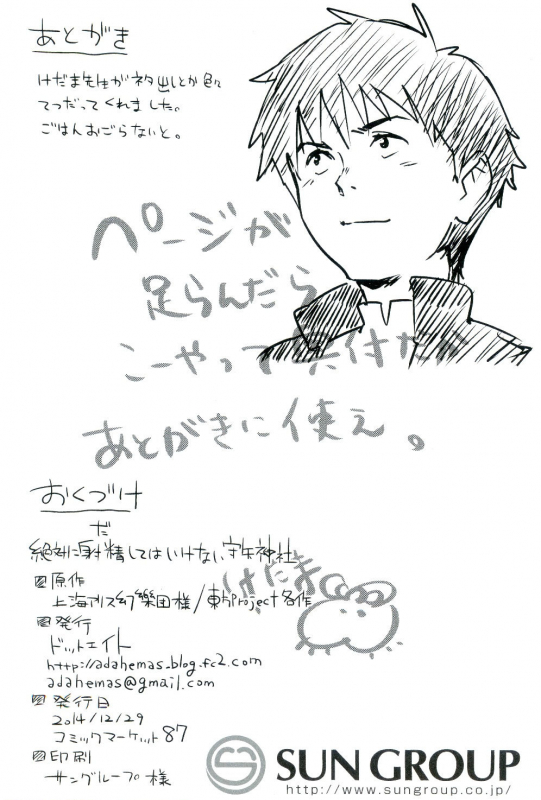 あとがき
けだま先生がネタ出しとか色々
てつだってくれました。
ごはんおごらないと。
ページが
足らんだら
こーやって
あとがきに使え。
おくづけ
だ
絶対に射精してはいけない守矢神社
原作
上海アリス幻樂団様/東方Project各作
けだま
発行
ドットエイト
http://adahemas.blog.fc2.com
adahemas@gmail.com
発行日
2014/12/29
コミックマーケット87
印刷
サングループ様
SUN GROUP
http://www.sungroup.co.jp/